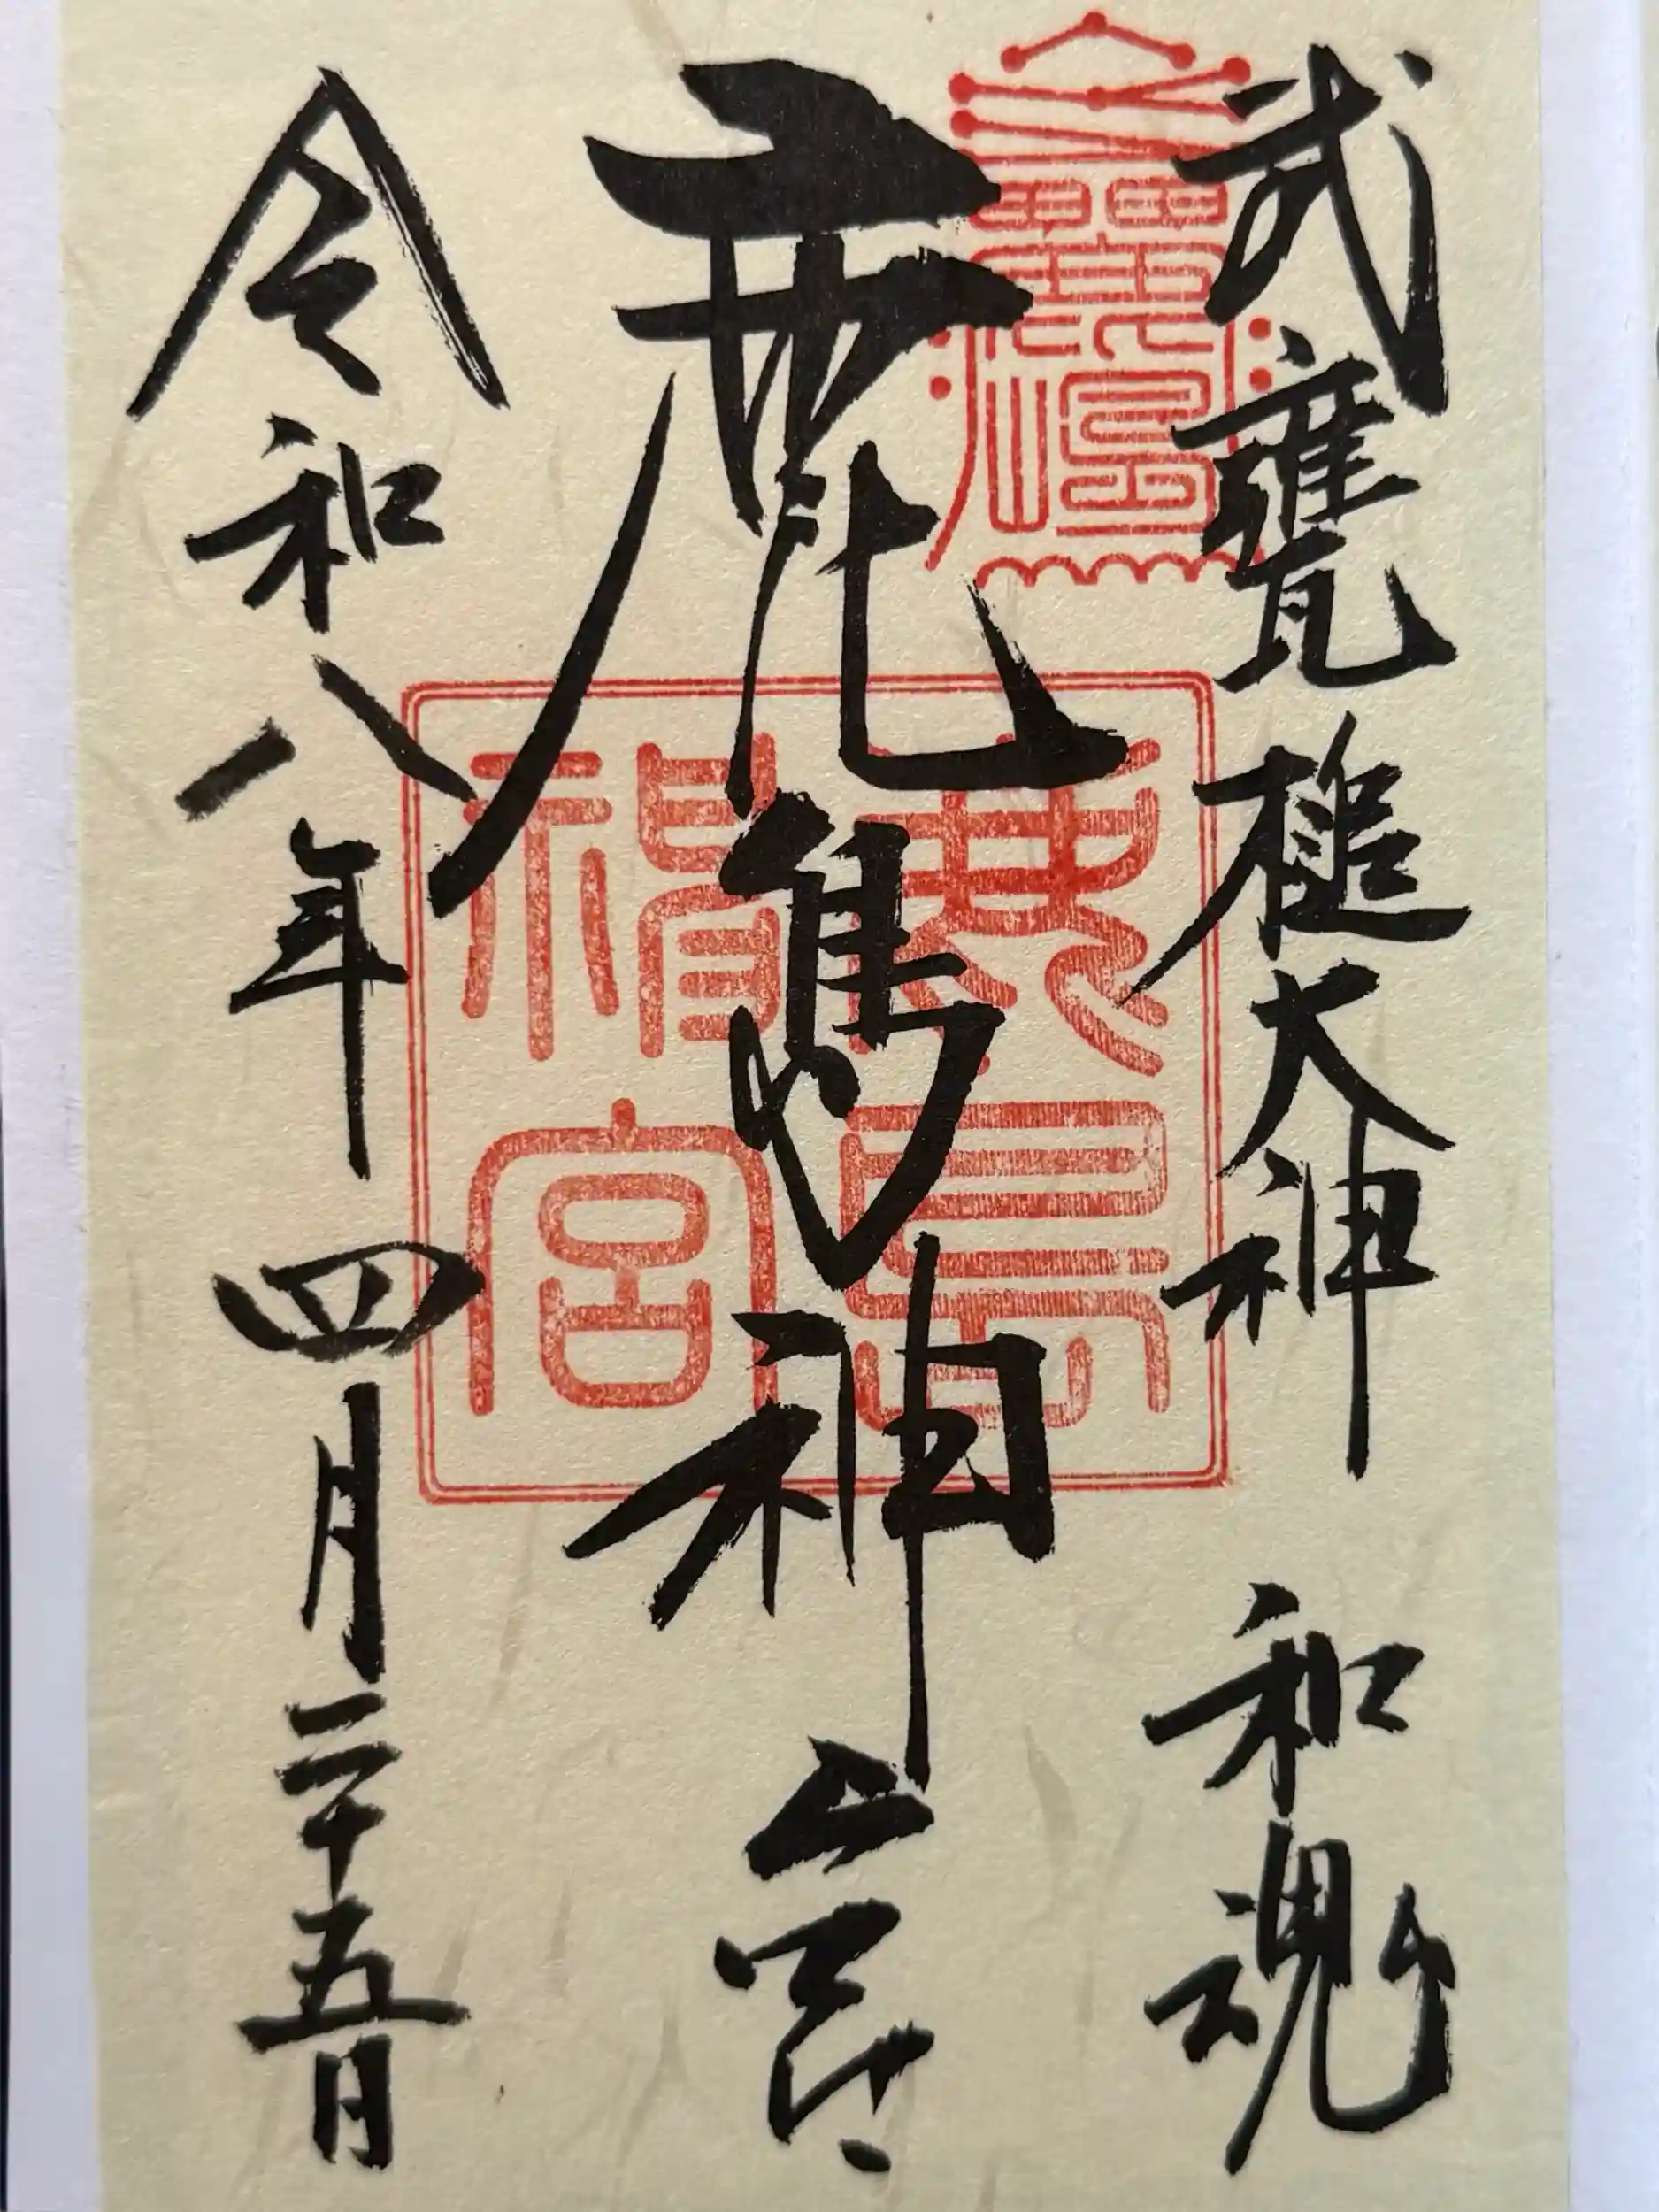 武甕槌大神 和魂
鹿島神宮
令和八年 四月二十五日